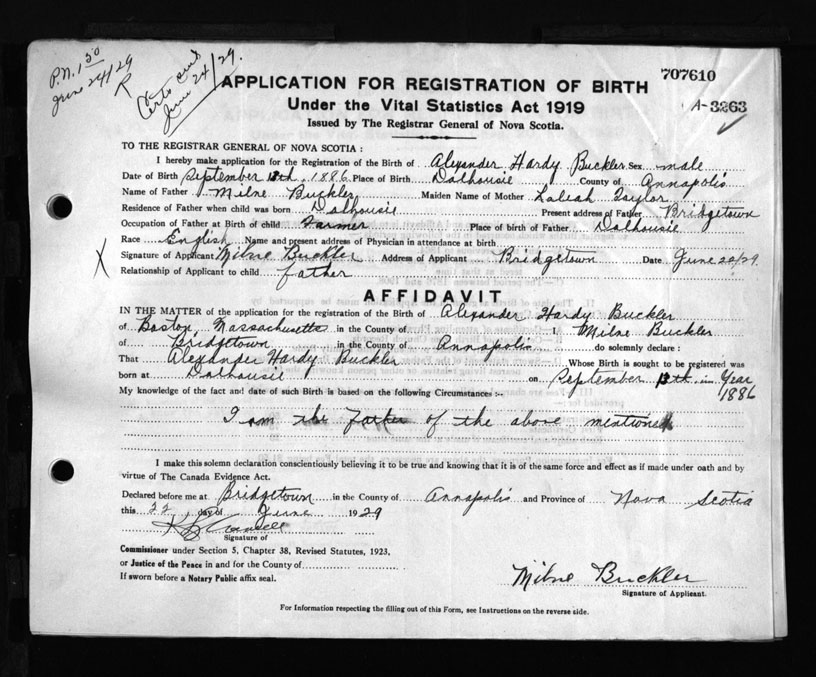 P.N. 1 50
June 24/29
R
Certo sent
June 24/29.
707610
A-3263
APPLICATION FOR REGISTRATION OF BIRTH
Under the Vital Statistics Act 1919
Issued by The Registrar General of Nova Scotia.
TO THE REGISTRAR GENERAL OF NOVA SCOTIA:
I hereby make application for the Registration of the Birth of Alexander Hardy Buckler Sex male
Date of Birth September 13th, 1886 Place of Birth Dalhousie County of Annapolis
Name of Father Milne Buckler Maiden Name of Mother Taylor
Residence of Father when child was born Dalhousie Present address of Father Bridgetown
Occupation of Father at Birth of child Farmer Place of birth of Father Dalhousie
Race English Name and present address of Physician in attendance at birth
X Signature of Applicant Milne Buckler Address of Applicant Bridgetown Date June 22/29.
Relationship of Applicant to child father
AFFIDAVIT
IN THE MATTER of the application for the registration of the Birth of Alexander Hardy Buckler
of Boston, Massachusetts in the County of I, Milne Buckler
of Bridgetown in the County of Annapolis do solemnly declare:
That Alexander Hardy Buckler Whose Birth is sought to be registered was
born at Dalhousie on September 13th in Year
1886
My knowledge of the fact and date of such Birth is based on the following Circumstances :-
I am the Father of the above mentioned
I make this solemn declaration conscientiously believing it to be true and knowing that it is of the same force and effect as if made under oath and by
virtue of The Canada Evidence Act.
Declared before me at Bridgetown in the County of Annapolis and Province of Nova Scotia
this 22 day of June 1929
Signature of
Commissioner under Section 5, Chapter 38, Revised Statutes, 1923.
or Justice of the Peace in and for the County of
If sworn before a Notary Public affix seal.
Milne Buckler
Signature of Applicant.
For Information respecting the filling out of this Form, see Instructions on the reverse side.